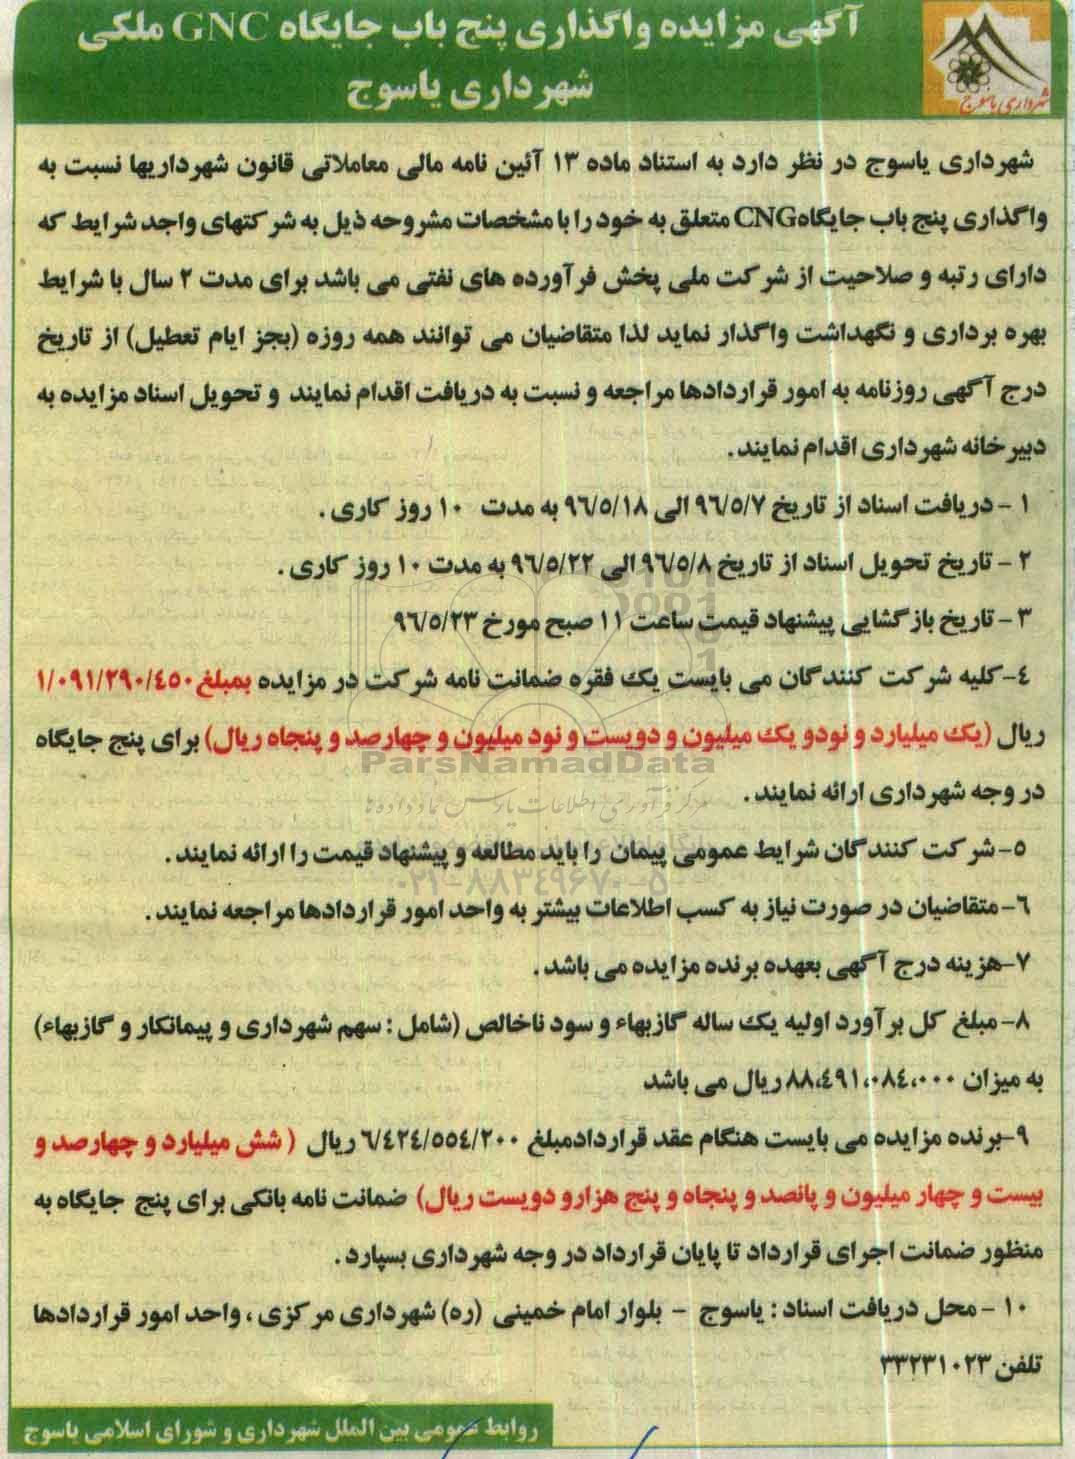 آگهی مزایده واگذاری پنج باب جایگاه GNC ملکی
شهرداری یاسوج
شهرداری یاسوج
شهرداری یاسوج در نظر دارد به استناد ماده ۱۳ آئین نامه مالی معاملاتی قانون شهرداریها نسبت به
واگذاری پنج باب جایگاه CNG متعلق به خود را با مشخصات مشروحه ذیل به شرکتهای واجد شرایط که
دارای رتبه و صلاحیت از شرکت ملی پخش فرآورده های نفتی می باشد برای مدت ۲ سال با شرایط
بهره برداری و نگهداشت واگذار نماید لذا متقاضیان می توانند همه روزه (بجز ایام تعطیل) از تاریخ
درج آگهی روزنامه به امور قراردادها مراجعه و نسبت به دریافت اقدام نمایند و تحویل اسناد مزایده به
دبیرخانه شهرداری اقدام نمایند.
۱ - دریافت اسناد از تاریخ ۹۶/۵/۷ الی ۹۶/۵/۱۸ به مدت ۱۰ روز کاری .
۲ - تاریخ تحویل اسناد از تاریخ ۹۶/۵/۸ الی ۹۶/۵/۲۲ به مدت ۱۰ روز کاری .
۳ - تاریخ بازگشایی پیشنهاد قیمت ساعت ۱۱ صبح مورخ ۹۶/۵/۲۳
۴-کلیه شرکت کنندگان می بایست یک فقره ضمانت نامه شرکت در مزایده بمبلغ ۱/۰۹۱/۲۹۰/۴۵۰
ریال (یک میلیارد و نودو یک میلیون و دویست و نود میلیون و چهارصد و پنجاه ریال) برای پنج جایگاه
ParsNamadData
در وجه شهرداری ارائه نمایند.
مرکز فرآوری اطلاعات پارس نماد داده‌ها
۵-شرکت کنندگان شرایط عمومی پیمان را باید مطالعه و پیشنهاد قیمت را ارائه نمایند.
۰۲۱-۸۸۳۴۹۶۷۰-۵
۶-متقاضیان در صورت نیاز به کسب اطلاعات بیشتر به واحد امور قراردادها مراجعه نمایند.
۷-هزینه درج آگهی بعهده برنده مزایده می باشد.
۸- مبلغ کل برآورد اولیه یک ساله گازبهاء و سود ناخالص (شامل : سهم شهرداری و پیمانکار و گازبهاء)
به میزان ۸۸،۴۹۱،۰۸۴،۰۰۰ ریال می باشد
۹-برنده مزایده می بایست هنگام عقد قراردادمبلغ ۶/۴۲۴/۵۵۴/۲۰۰ ریال ( شش میلیارد و چهارصد و
بیست و چهار میلیون و پانصد و پنجاه و پنج هزارو دویست ریال) ضمانت نامه بانکی برای پنج جایگاه به
منظور ضمانت اجرای قرارداد تا پایان قرارداد در وجه شهرداری بسپارد.
۱۰ - محل دریافت اسناد : یاسوج - بلوار امام خمینی (ره) شهرداری مرکزی ، واحد امور قراردادها
تلفن ۳۳۲۳۱۰۲۳
روابط عمومی بین الملل شهرداری و شورای اسلامی یاسوج